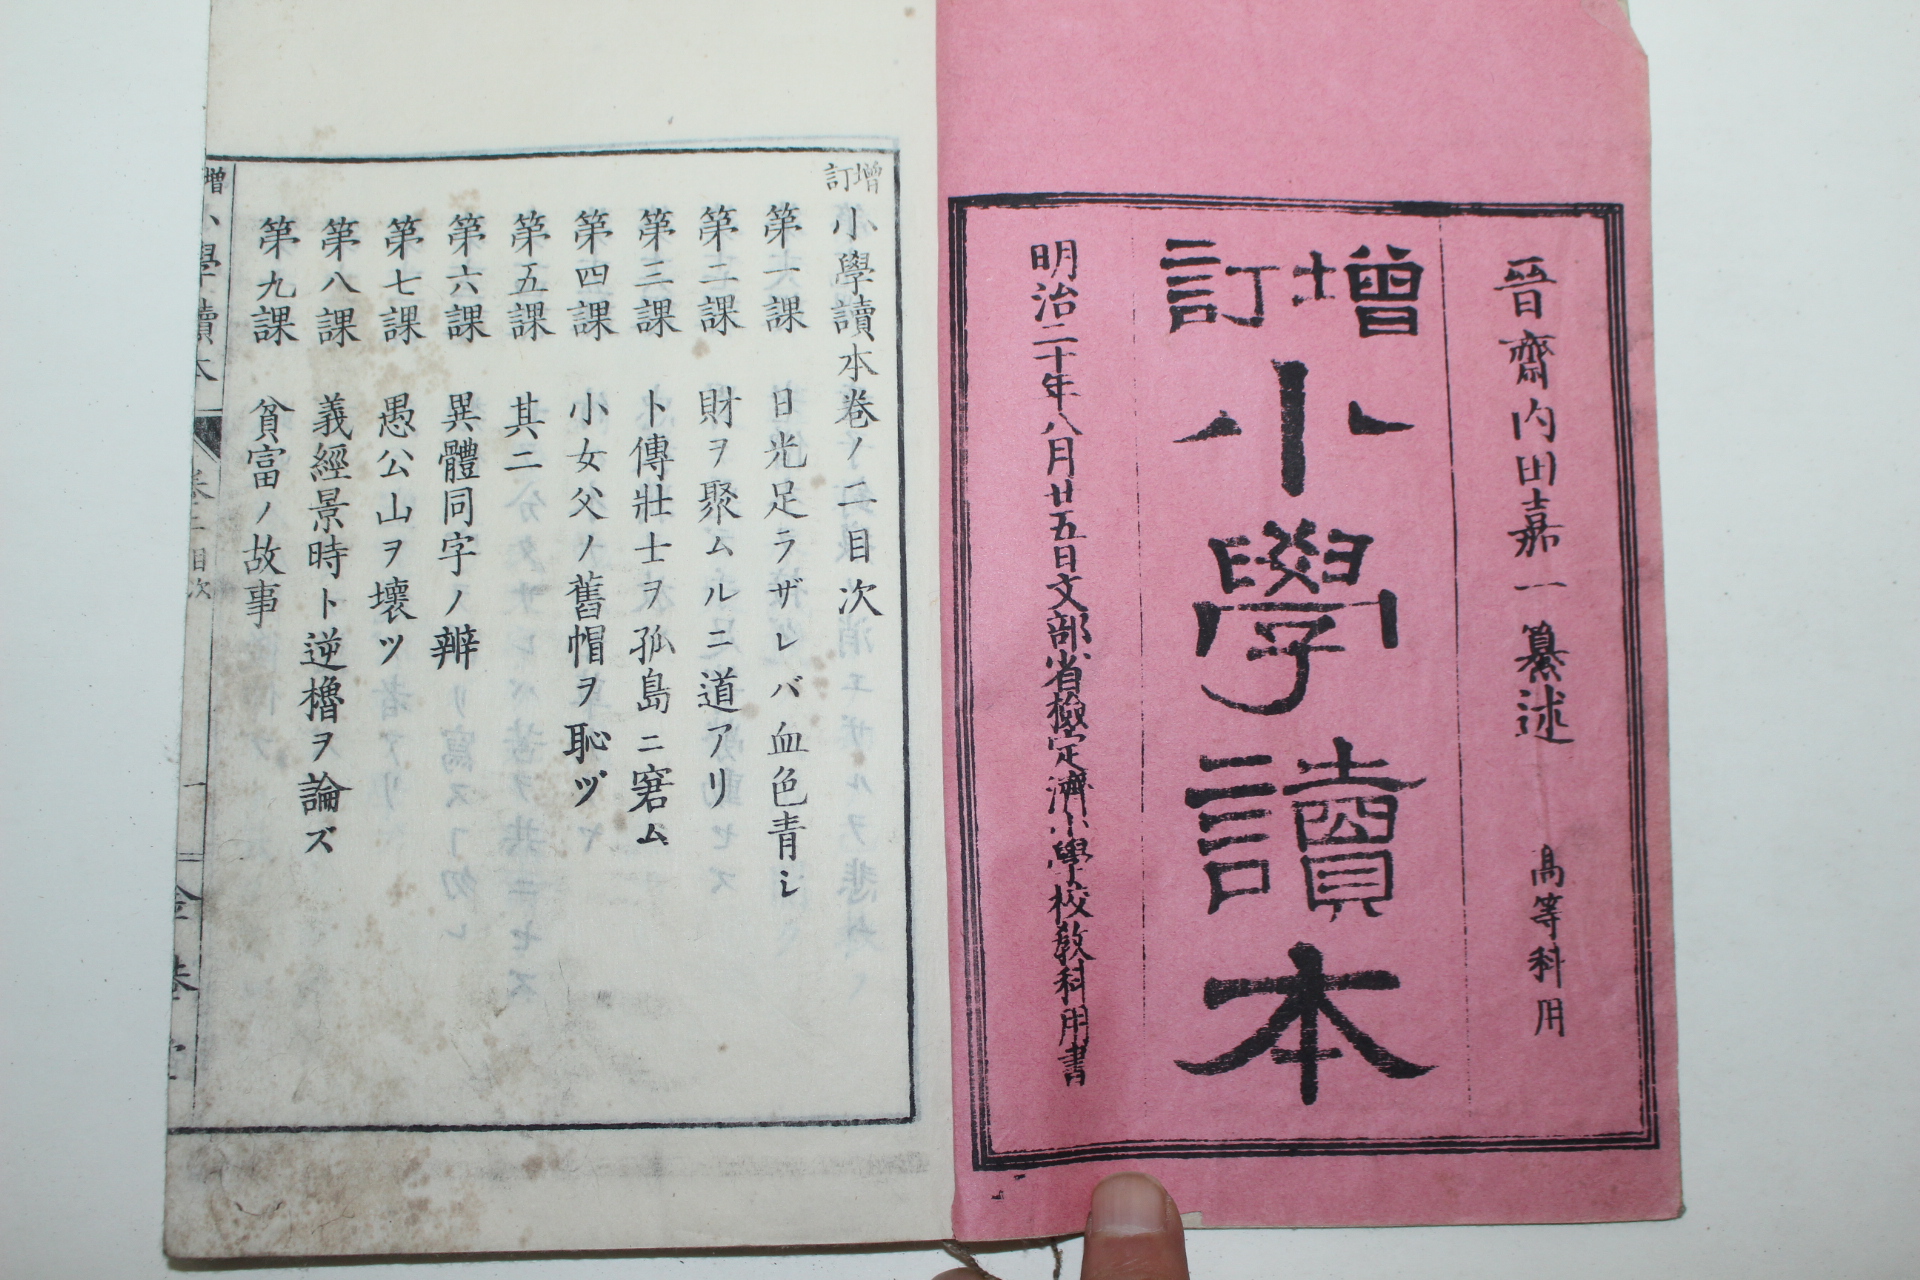 晉齋內田嘉一纂述　高等科用
增訂小學讀本
明治二十年八月廿五日文部省檢定濟小學校敎科用書
增訂小學讀本卷ノ二目次
第一課　日光足ラザレバ血色靑シ
第二課　財ヲ聚ムルニ道アリ
第三課　卜傳壯士ヲ孤島ニ窘ム
第四課　小女父ノ舊帽ヲ恥ヅ
第五課　其二
第六課　異體同字ノ辨
第七課　愚公山ヲ壞ツ
第八課　義經景時ト逆櫓ヲ論ズ
第九課　貧富ノ故事
增　小學讀本　卷二　目次　一　金港堂